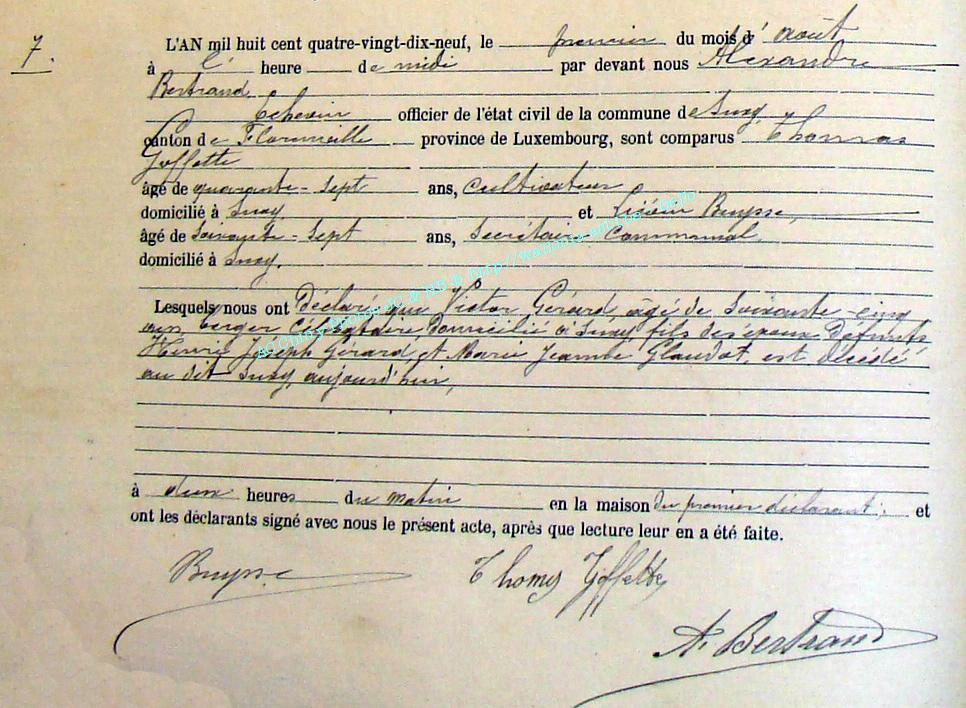 7.
L'AN mil huit cent quatre-vingt-dix-neuf, le premier du mois d'août
à l' heure de midi par devant nous Alexandre
Bertrand
Echevin officier de l'état civil de la commune de Suxy,
canton de Florenville province de Luxembourg, sont comparus Thomas
Goffette
âgé de quarante-sept ans, cultivateur
domicilié à Suxy, et Buysse,
âgé de soixante-sept ans, Secrétaire Communal,
domicilié à Suxy.
Lesquels nous ont Déclaré que Victor Gérard, âgé de soixante-cinq
ans, berger Célibataire Domicilié à Suxy, fils des époux Défunts
Henri Joseph Gérard et Marie Jeanne Glaudot, est Décédé
au dit Suxy, aujourd'hui,
à deux heures du matin en la maison du premier déclarant; et
ont les déclarants signé avec nous le présent acte, après que lecture leur en a été faite.
Buysse Thomas Goffette
A. Bertrand